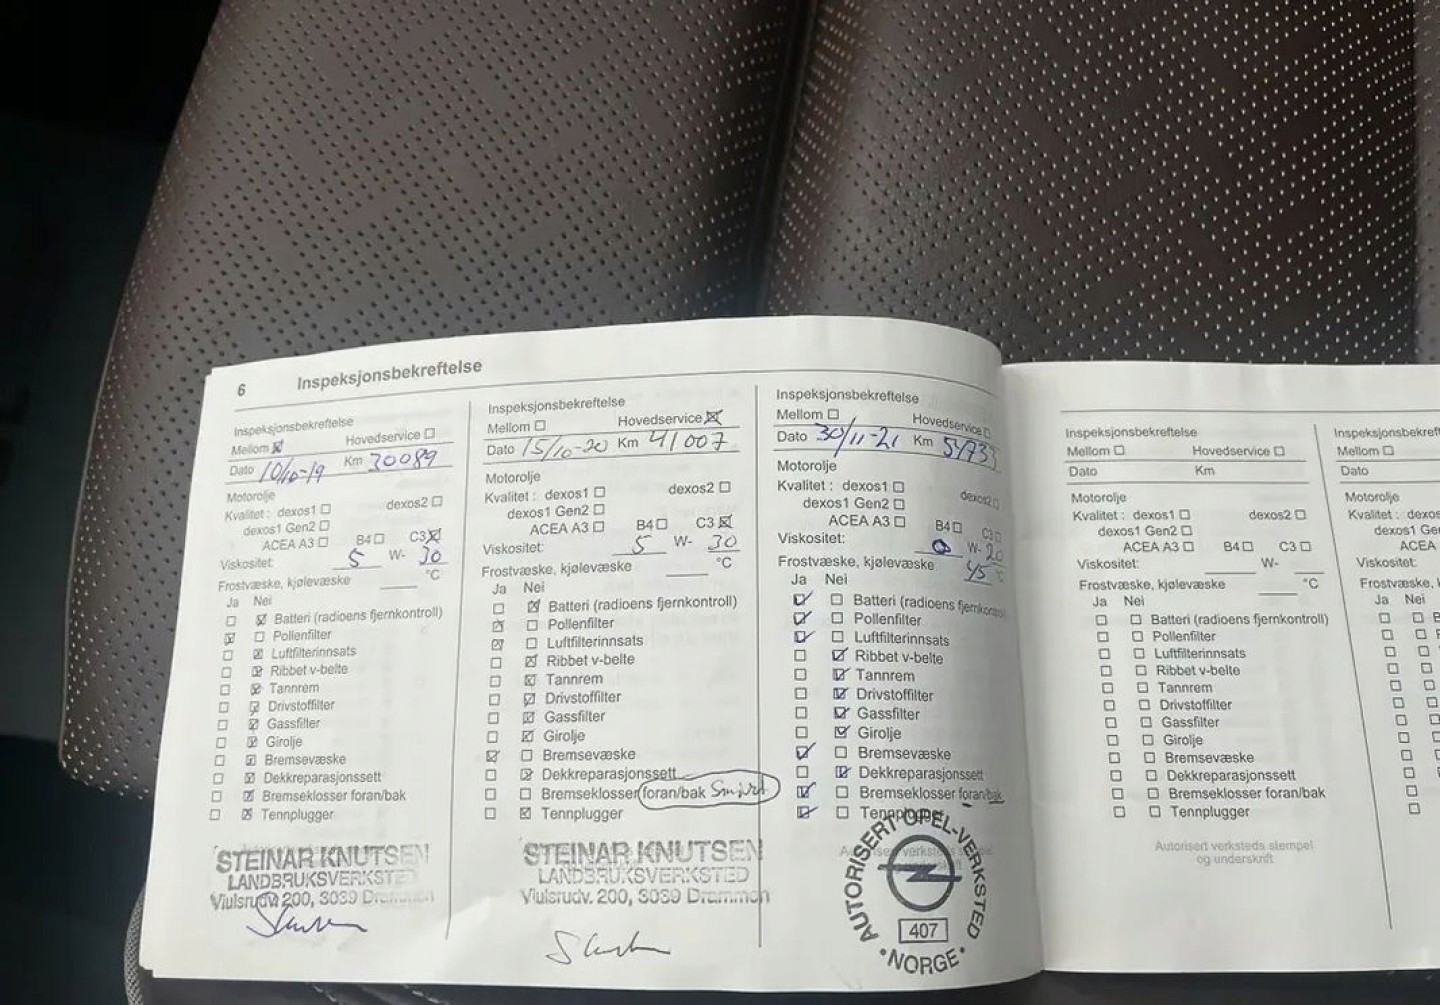 6 Inspeksjonsbekreftelse
Inspeksjonsbekreftelse
Mellom ☒ Hovedservice ☐
Dato 10/10-19 Km 30089
Motorolje
Kvalitet : dexos1 ☐ dexos2 ☐
dexos1 Gen2 ☐
ACEA A3 ☐ B4 ☐ C3 ☒
Viskositet: 5 W- 30
Frostvæske, kjølevæske ____ °C
Ja Nei
☐ ☒ Batteri (radioens fjernkontroll)
☒ ☐ Pollenfilter
☐ ☒ Luftfilterinnsats
☐ ☒ Ribbet v-belte
☐ ☒ Tannrem
☐ ☒ Drivstoffilter
☐ ☒ Gassfilter
☐ ☒ Girolje
☐ ☒ Bremsevæske
☐ ☒ Dekkreparasjonssett
☐ ☒ Bremseklosser foran/bak
☐ ☒ Tennplugger
STEINAR KNUTSEN
LANDBRUKSVERKSTED
Viulsrudv 200, 3039 Drammen
Inspeksjonsbekreftelse
Mellom ☐ Hovedservice ☒
Dato 15/10-20 Km 41007
Motorolje
Kvalitet : dexos1 ☐ dexos2 ☐
dexos1 Gen2 ☐
ACEA A3 ☐ B4 ☐ C3 ☒
Viskositet: 5 W- 30
Frostvæske, kjølevæske ____ °C
Ja Nei
☐ ☒ Batteri (radioens fjernkontroll)
☒ ☐ Pollenfilter
☒ ☐ Luftfilterinnsats
☐ ☒ Ribbet v-belte
☐ ☒ Tannrem
☐ ☒ Drivstoffilter
☐ ☒ Gassfilter
☐ ☒ Girolje
☒ ☐ Bremsevæske
☐ ☒ Dekkreparasjonssett
☐ ☐ Bremseklosser foran/bak Smurt
☐ ☒ Tennplugger
STEINAR KNUTSEN
LANDBRUKSVERKSTED
Viulsrudv. 200, 3039 Drammen
Inspeksjonsbekreftelse
Mellom ☐ Hovedservice ☐
Dato 30/11-21 Km 54733
Motorolje
Kvalitet : dexos1 ☐ dexos2 ☐
dexos1 Gen2 ☐
ACEA A3 ☐ B4 ☐ C3 ☐
Viskositet: 0 W- 20
Frostvæske, kjølevæske 45 °C
Ja Nei
☒ ☐ Batteri (radioens fjernkontroll)
☒ ☐ Pollenfilter
☒ ☐ Luftfilterinnsats
☐ ☒ Ribbet v-belte
☐ ☒ Tannrem
☐ ☒ Drivstoffilter
☐ ☒ Gassfilter
☐ ☒ Girolje
☒ ☐ Bremsevæske
☐ ☒ Dekkreparasjonssett
☒ ☐ Bremseklosser foran/bak
☒ ☐ Tennplugger
AUTORISERT OPEL-VERKSTED
407
• NORGE •
Inspeksjonsbekreftelse
Mellom ☐ Hovedservice ☐
Dato Km
Motorolje
Kvalitet : dexos1 ☐ dexos2 ☐
dexos1 Gen2 ☐
ACEA A3 ☐ B4 ☐ C3 ☐
Viskositet: ____ W- ____
Frostvæske, kjølevæske ____ °C
Ja Nei
☐ ☐ Batteri (radioens fjernkontroll)
☐ ☐ Pollenfilter
☐ ☐ Luftfilterinnsats
☐ ☐ Ribbet v-belte
☐ ☐ Tannrem
☐ ☐ Drivstoffilter
☐ ☐ Gassfilter
☐ ☐ Girolje
☐ ☐ Bremsevæske
☐ ☐ Dekkreparasjonssett
☐ ☐ Bremseklosser foran/bak
☐ ☐ Tennplugger
Autorisert verksteds stempel
og underskrift
Inspeksjonsbekreft
Mellom ☐
Dato
Motorolje
Kvalitet : dexos
dexos1 G
ACEA
Viskositet:
Frostvæske, k
Ja Nei